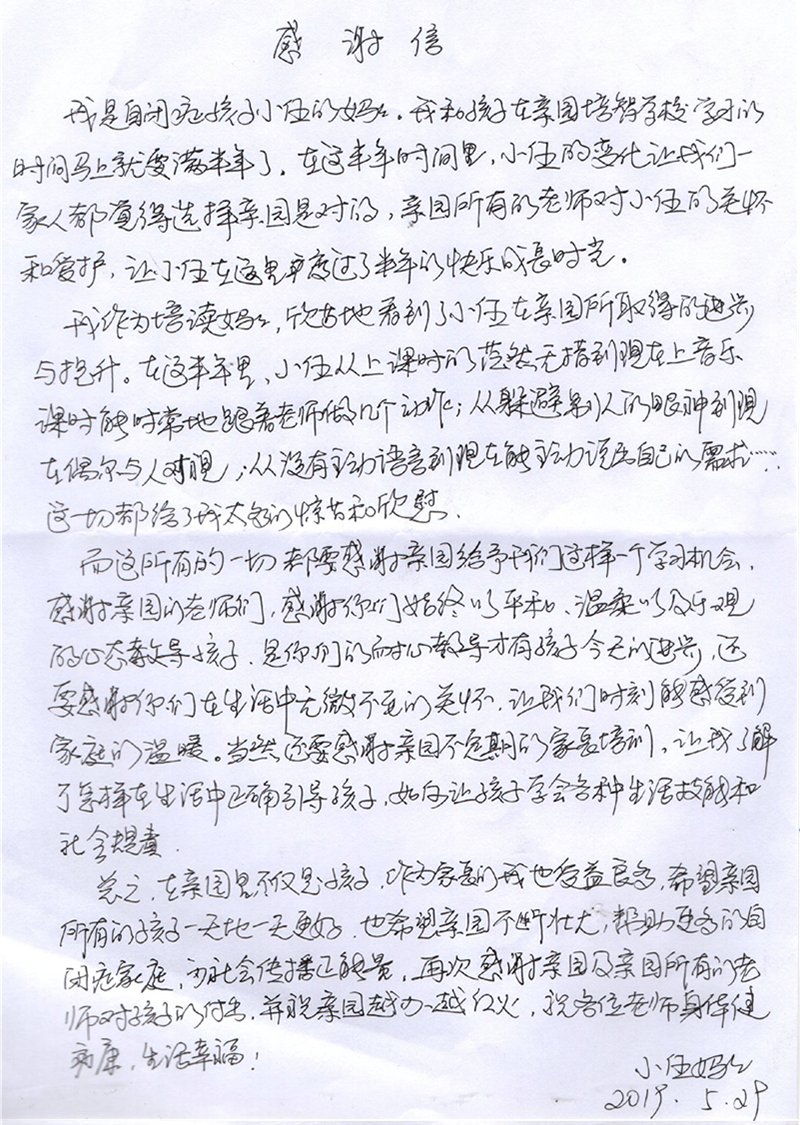 感谢信
我是自闭症孩子小伍的妈妈。我和孩子在亲园培智学校学习的
时间马上就要满半年了。在这半年时间里，小伍的变化让我们一
家人都觉得选择亲园是对的，亲园所有的老师对小伍的关怀
和爱护，让小伍在这里度过了半年的快乐成长时光。
我作为培读妈妈，欣喜地看到了小伍在亲园所取得的进步
与提升。在这半年里，小伍从上课时的茫然无措到现在上音乐
课时能时常地跟着老师做几个动作；从躲避别人的眼神到现
在偶尔与人对视；从没有主动语言到现在能主动说出自己的需求……
这一切都给了我太多的惊喜和欣慰。
而这所有的一切都要感谢亲园给予我们这样一个学习机会，
感谢亲园的老师们，感谢你们始终以平和、温柔以及乐观
的心态教导孩子，是你们的耐心教导才有孩子今天的进步，还
要感谢你们在生活中无微不至的关怀，让我们时刻能感受到
家庭的温暖。当然还要感谢亲园不定期的家长培训，让我了解
了怎样在生活中正确引导孩子，如何让孩子学会各种生活技能和
社会规责。
总之，在亲园里不仅是孩子，作为家长的我也受益良多，希望亲园
所有的孩子一天比一天更好，也希望亲园不断壮大，帮助更多的自
闭症家庭，为社会传播正能量，再次感谢亲园及亲园所有的老
师对孩子的付出，并祝亲园越办越红火，祝各位老师身体健
康，生活幸福！
小伍妈妈
2019.5.29